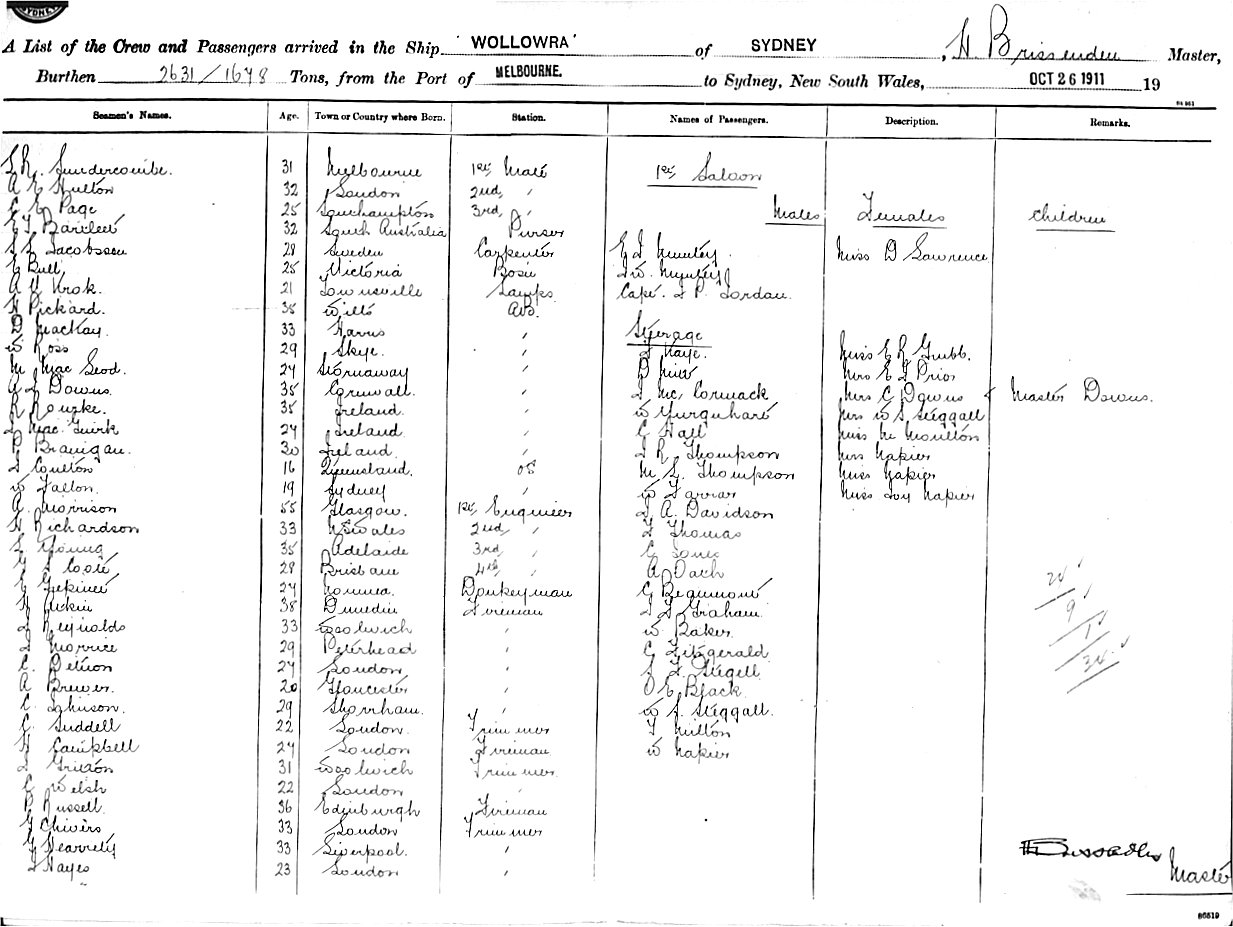 SYDNEY
A List of the Crew and Passengers arrived in the Ship 'WOLLOWRA' of SYDNEY, H. Brissenden Master,
Burthen 2631/1678 Tons, from the Port of MELBOURNE. to Sydney, New South Wales, OCT 26 1911 19
Seamen's Names. Age. Town or Country where Born. Station. Names of Passengers. Description. Remarks.
31 Melbourne 1st Mate 1st Saloon
32 London 2nd "
C E Page 25 Southampton 3rd " Males Females Children
32 South Australia Purser
Jacobsen 28 Sweden Carpenter Miss D Lawrence
E Bull 25 Victoria
A Krok. 21 Townsville Lamps Capt. J P. Jordan.
H Pickard. 35 Wilts AB.
D Mackay. 33 Harris " Steerage
W. Ross 29 Skye. " Kaye. Miss E R Grubb.
M Mac Leod. 24 Stornaway " Mrs E J Prior
Downs. 35 Cornwall. " J Mc. Cormack Mrs C Downs & Master Downs.
R Rourke. 35 Ireland. " W Yurquhart Mrs W S Steggall
Mac Guirk 27 Ireland. " C Hall Miss M Moulton
P Branigan. 30 Ireland. " J R. Thompson Mrs Napier
J Coulton 16 Queensland. OS M L. Thompson Miss Napier
W Fallon. 19 Sydney " W Farrar Miss Ivy Napier
A. Morrison 55 Glasgow. 1st Engineer J A. Davidson
H Richardson 33 N S Wales 2nd " Thomas
Young 35 Adelaide 3rd " C Jones
S Coote 28 Brisbane 4th " A Dach
27 Noumea. Donkeyman C Beaumont 24
38 Dunedin Fireman Graham 9
J Reynolds 33 Woolwich " W Baker 1
J Morrice 29 Peterhead " C Fitzgerald 34
C. 27 London " S J. Stegell
A Brewer. 20 Gloucester " O E Black
C. Johnson. 29 Shoreham. " W S. Steggall.
C. Suddell 22 London. Trimmer Milton
H Campbell 24 London Fireman W Napier
31 Woolwich Trimmer.
C Welsh 22 London "
P Russell. 36 Edinburgh Fireman
Chivers 33 London Trimmer
33 Liverpool. "
J Hayes 23 London "
Master
86519